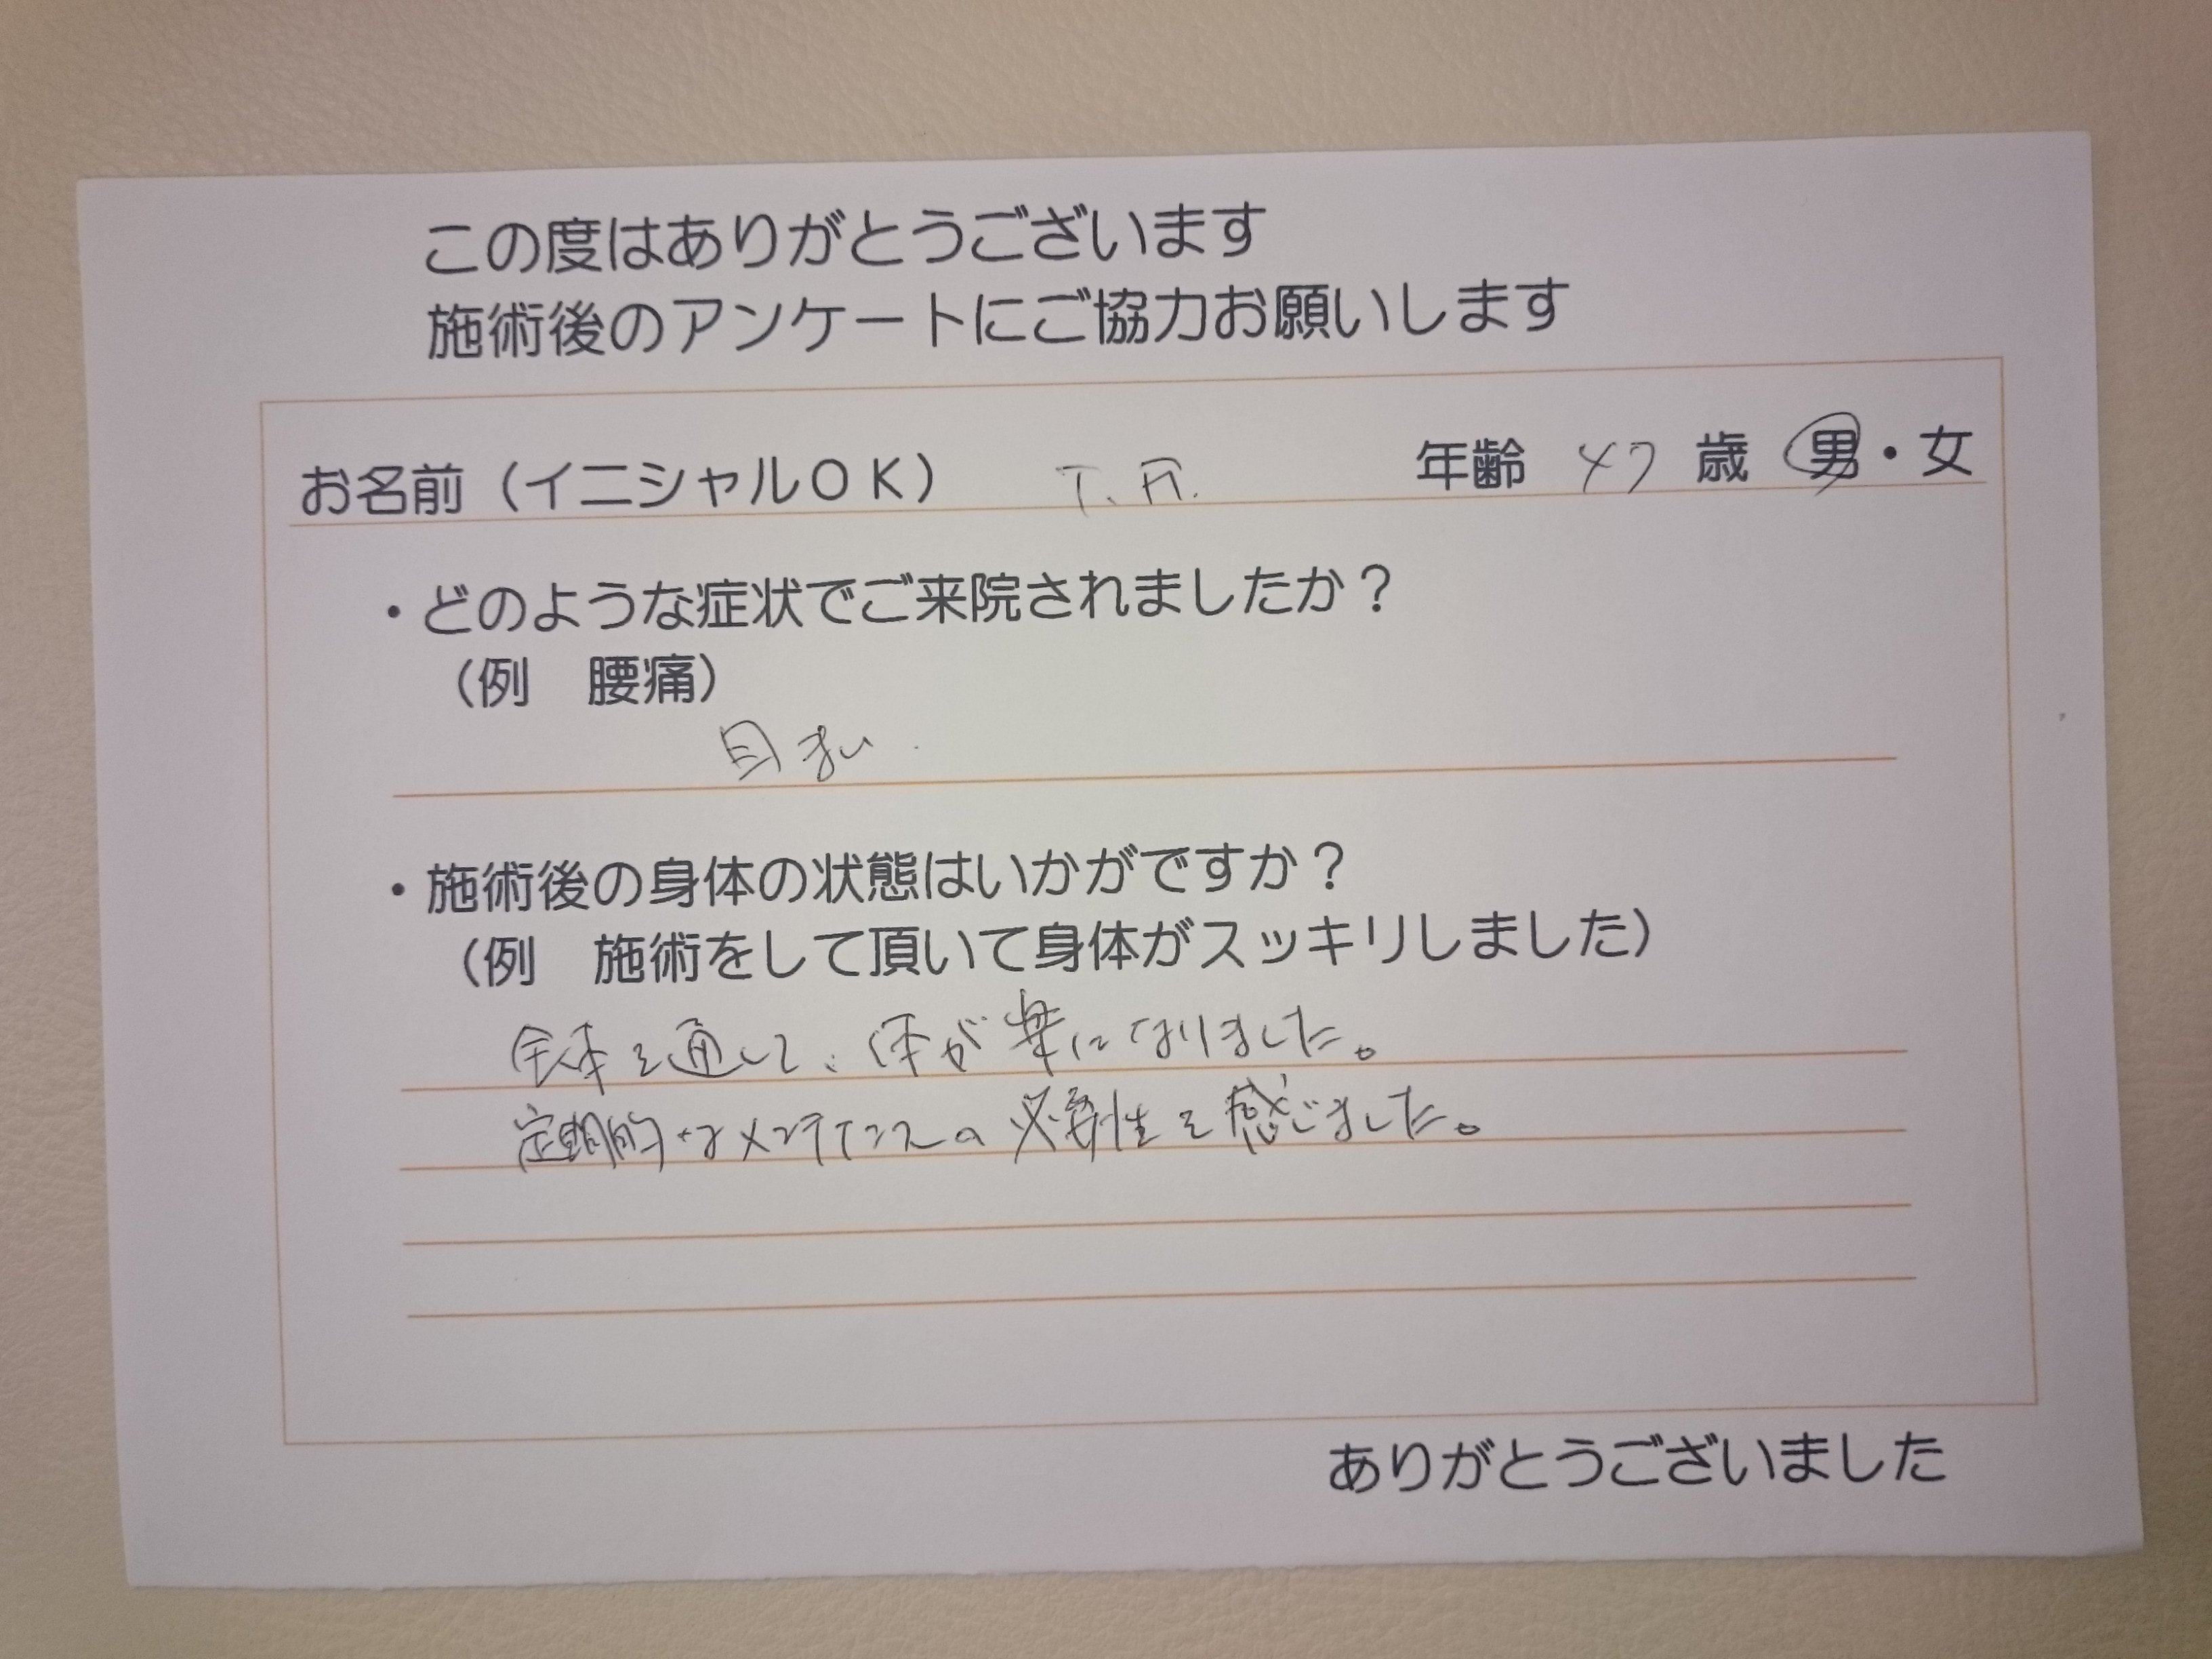 この度はありがとうございます
施術後のアンケートにご協力お願いします
お名前（イニシャルＯＫ） T.A. 年齢 47 歳 男・女
・どのような症状でご来院されましたか？
（例　腰痛）
・施術後の身体の状態はいかがですか？
（例　施術をして頂いて身体がスッキリしました）
全体を通して、体が楽になりました。
定期的なメンテナンスの必要性を感じました。
ありがとうございました